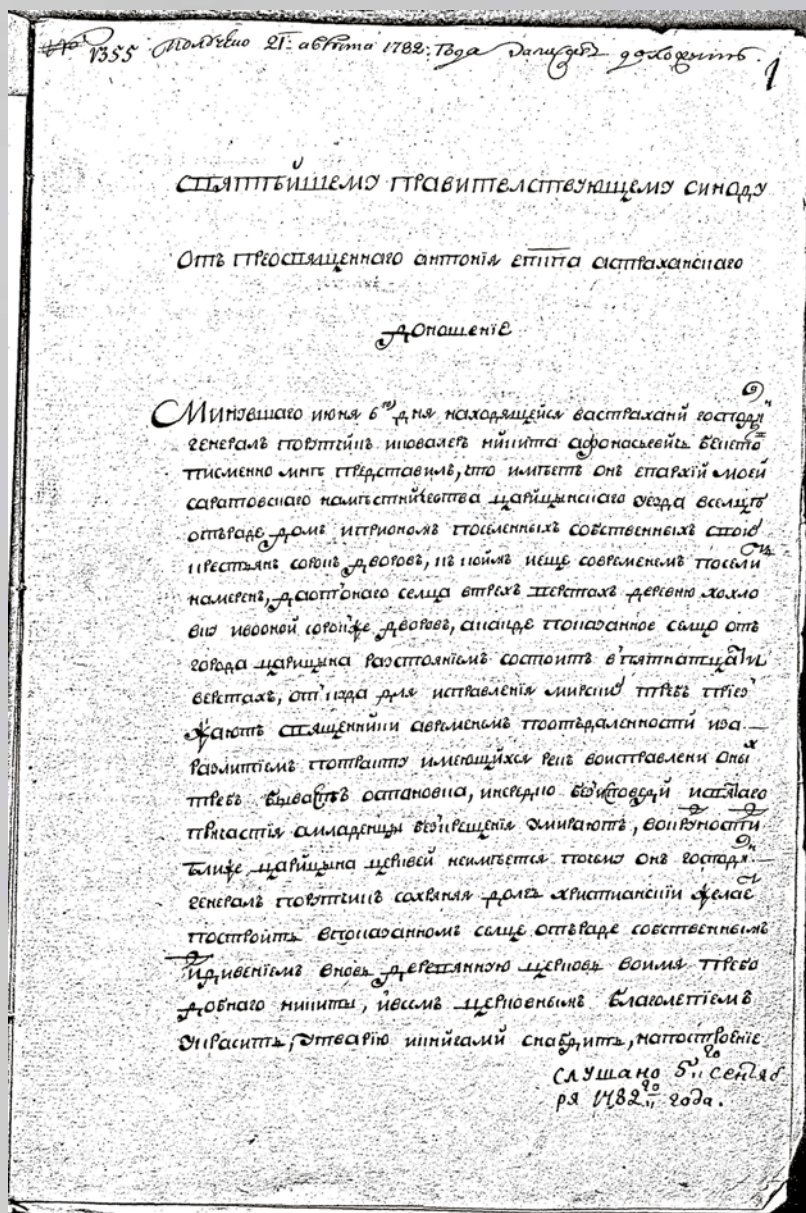 № 1355 Получено 21: августа 1782: года
1
СВЯТѢЙШЕМУ ПРАВИТЕЛСТВУЮЩЕМУ СИНОДУ
Отъ преосвященнаго антонія еп҃па астраханскаго
доношеніе
Минувшаго июня 6го дня находящейся вастраханй господинъ
генералъ порутчикъ икавалеръ никита афонасьевичь бекето
писменно мнѣ представилъ, что имѣетъ онъ епархій моей
саратовскаго намѣстничества царицынскаго уезда вселцѣ
отъраде домъ иприономъ поселенныхъ собственныхъ своихъ
крестьянъ сорокъ дворовъ, къ коймъ иеще современемъ поселить
намеренъ, даоттонаго селца втрехъ верстахъ деревню хохло
вку ивооной сорокъже дворовъ, акакде показанное селцо отъ
города царицына разстояніемъ состоитъ впятнатцати
верстахъ, откуда для исправленія мирскихъ требъ пріез
жаютъ священники авременемъ поотъдаленности иза
разлитіемъ потракту имеющихся рекъ воисправлени оныхъ
требъ бываетъ остановка, инередко безисповедй исвятаго
причастія амладенцы безкрещенія умираютъ, вокрупности
ближе царицына церквей неимѣется почему онъ господинъ
генералъ порутчикъ сохраняя долгъ христианскіи желаетъ
постройть впоказанномъ селце отъраде собственнымъ
иждивеніемъ вновь деревянную церковь воимя препо
добнаго никиты, ивсемъ церковнымъ благолепіемъ
украсить, утварію икнигамй снабдить, напостроеніе
слушано 5го сентяб
ря 1782го года.